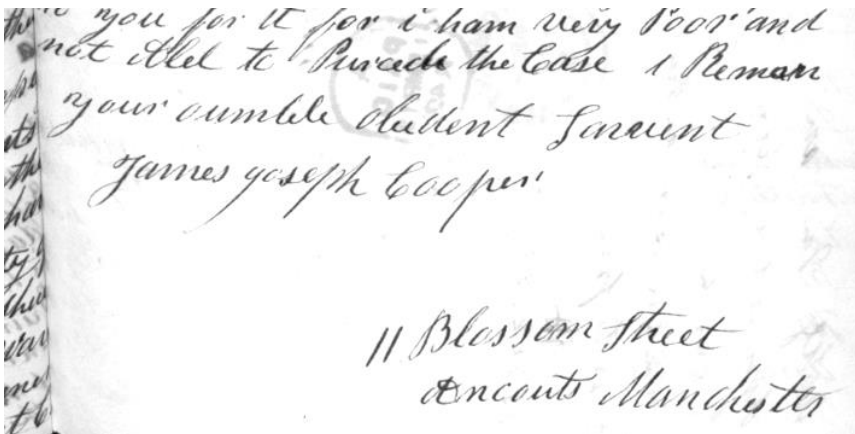 to you for it for i ham very Poor and
not Abel to Purcede the Case i Reman
your oumble obedent Sarvent
James Joseph Cooper
11 Blossom Street
Ancouts Manchester